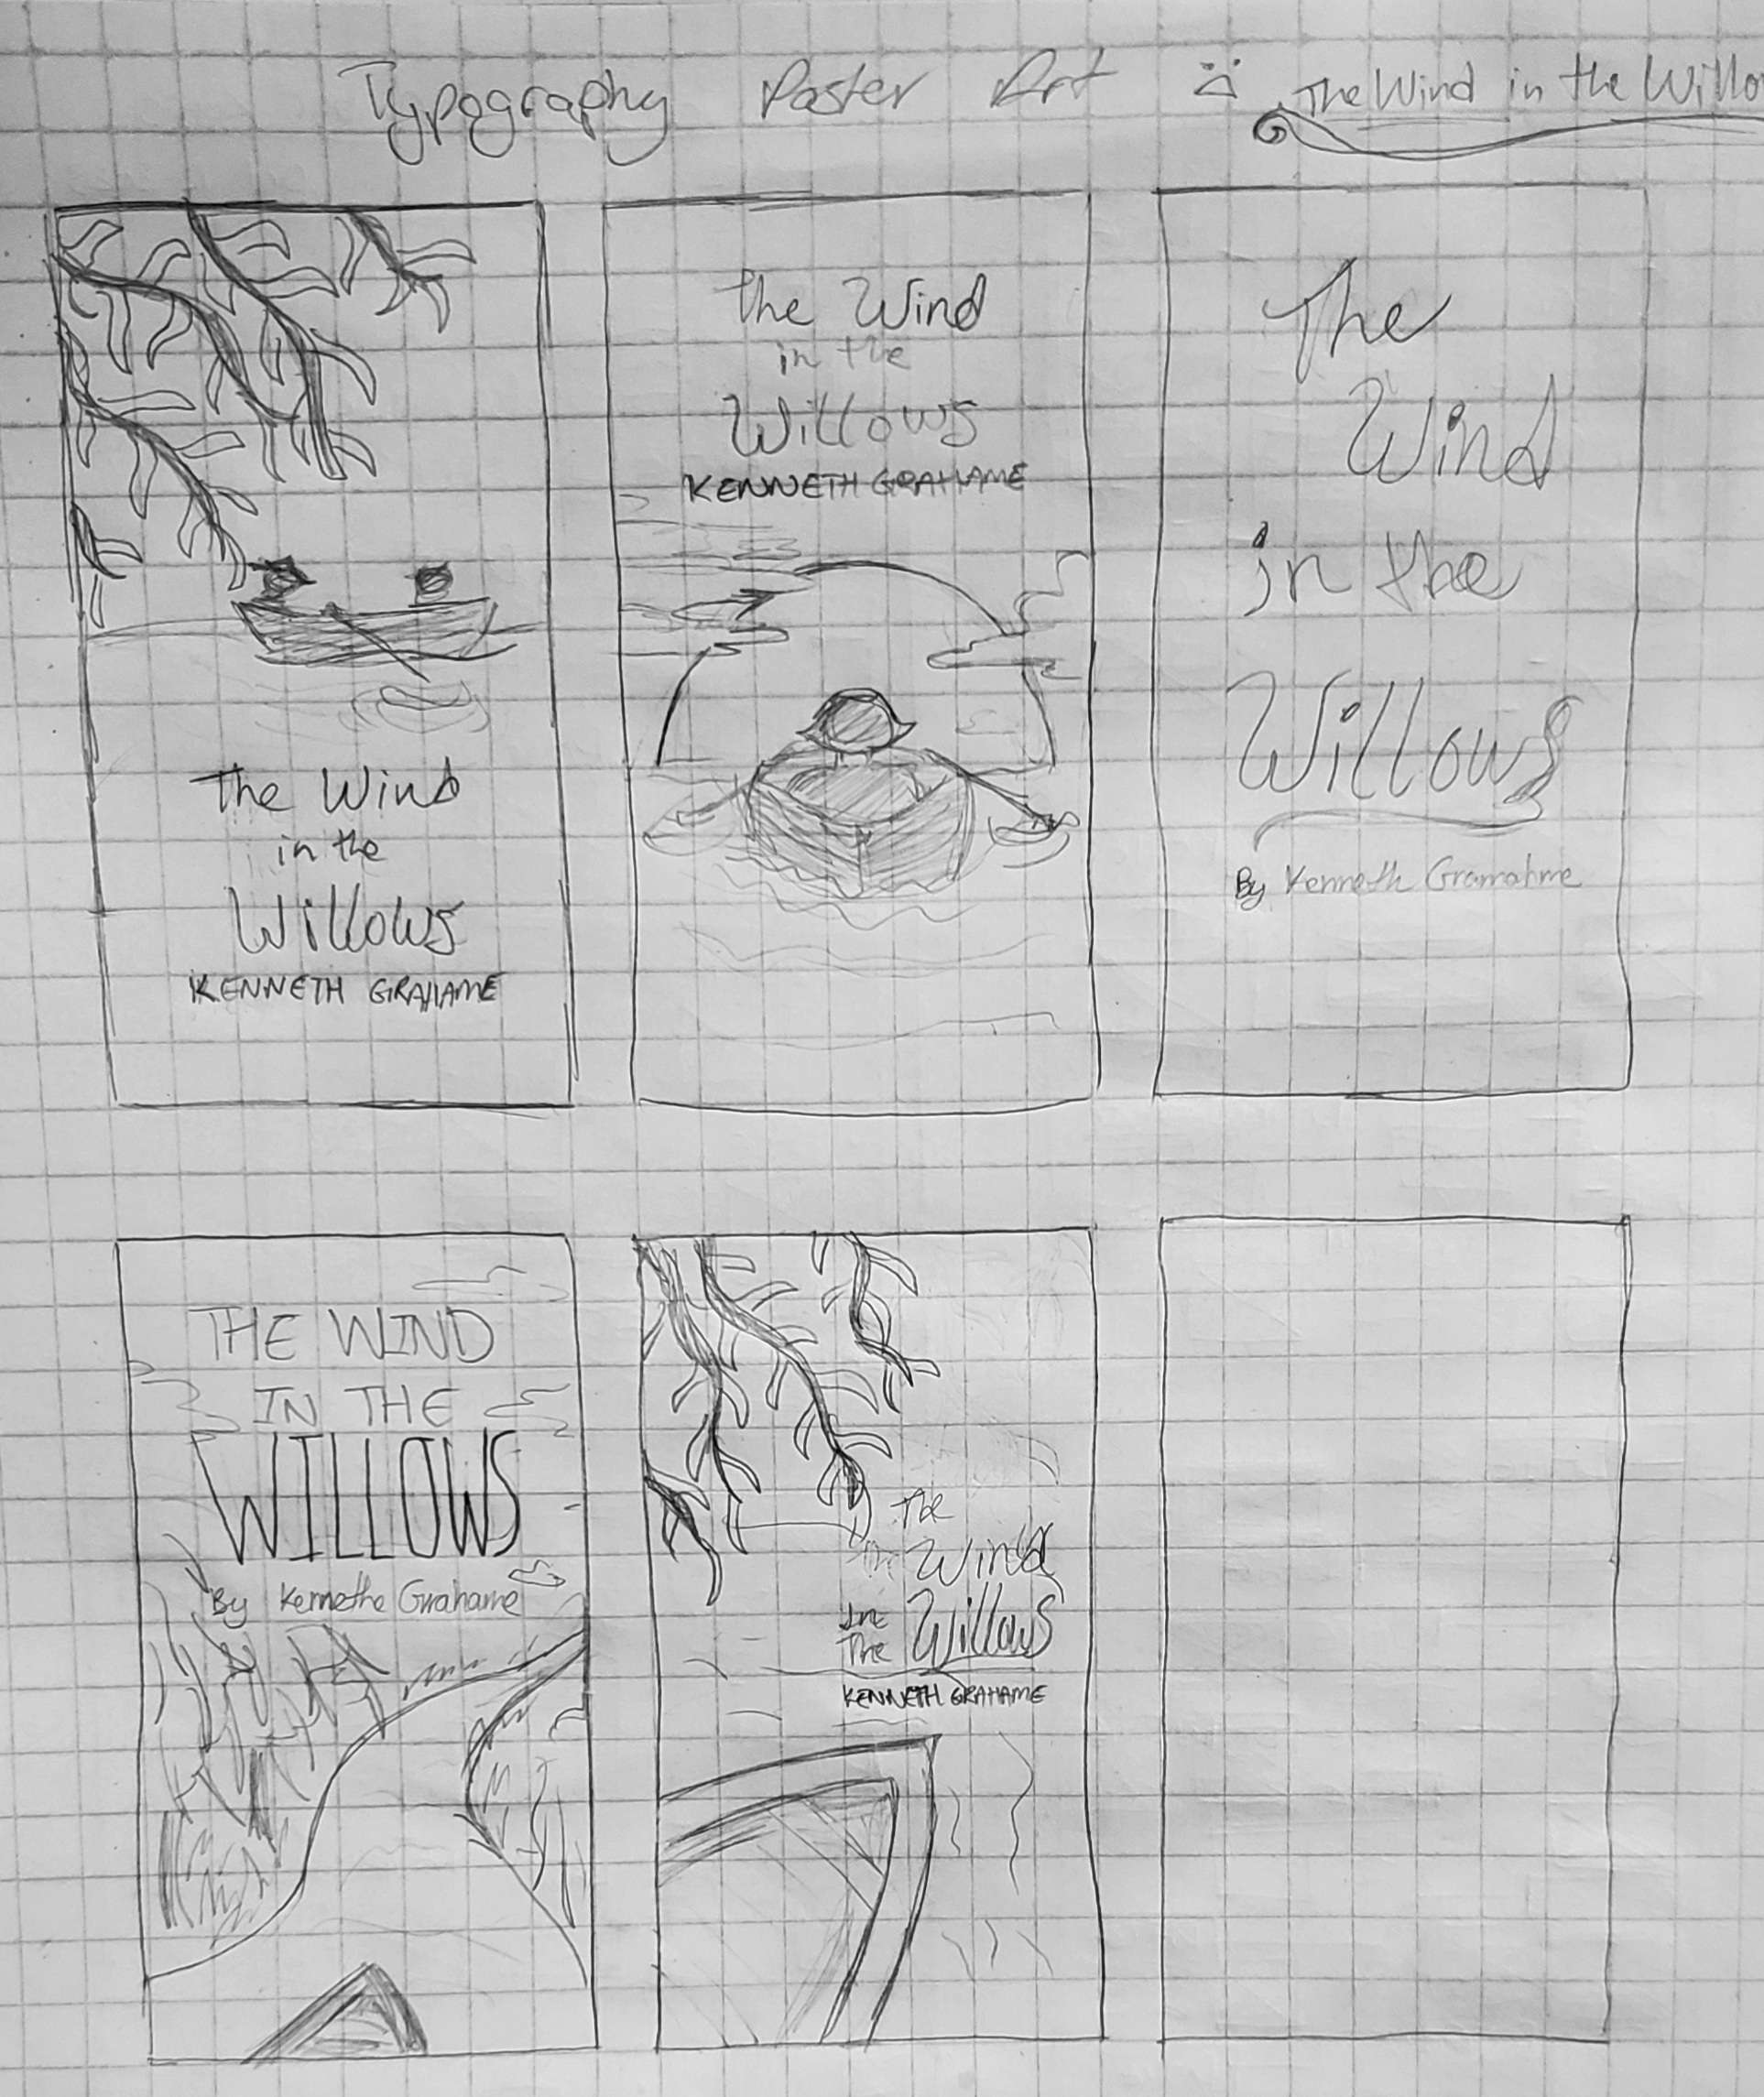 Typography Poster Art
The Wind in the Willo
The Wind
in the
Willows
KENNETH GRAHAME
The Wind
in the
Willows
KENNETH GRAHAME
The
Wind
in the
Willows
By Kenneth Gramahme
THE WIND
IN THE
WILLOWS
By Kennethe Grahame
The
Wind
In
The Willows
KENNETH GRAHAME